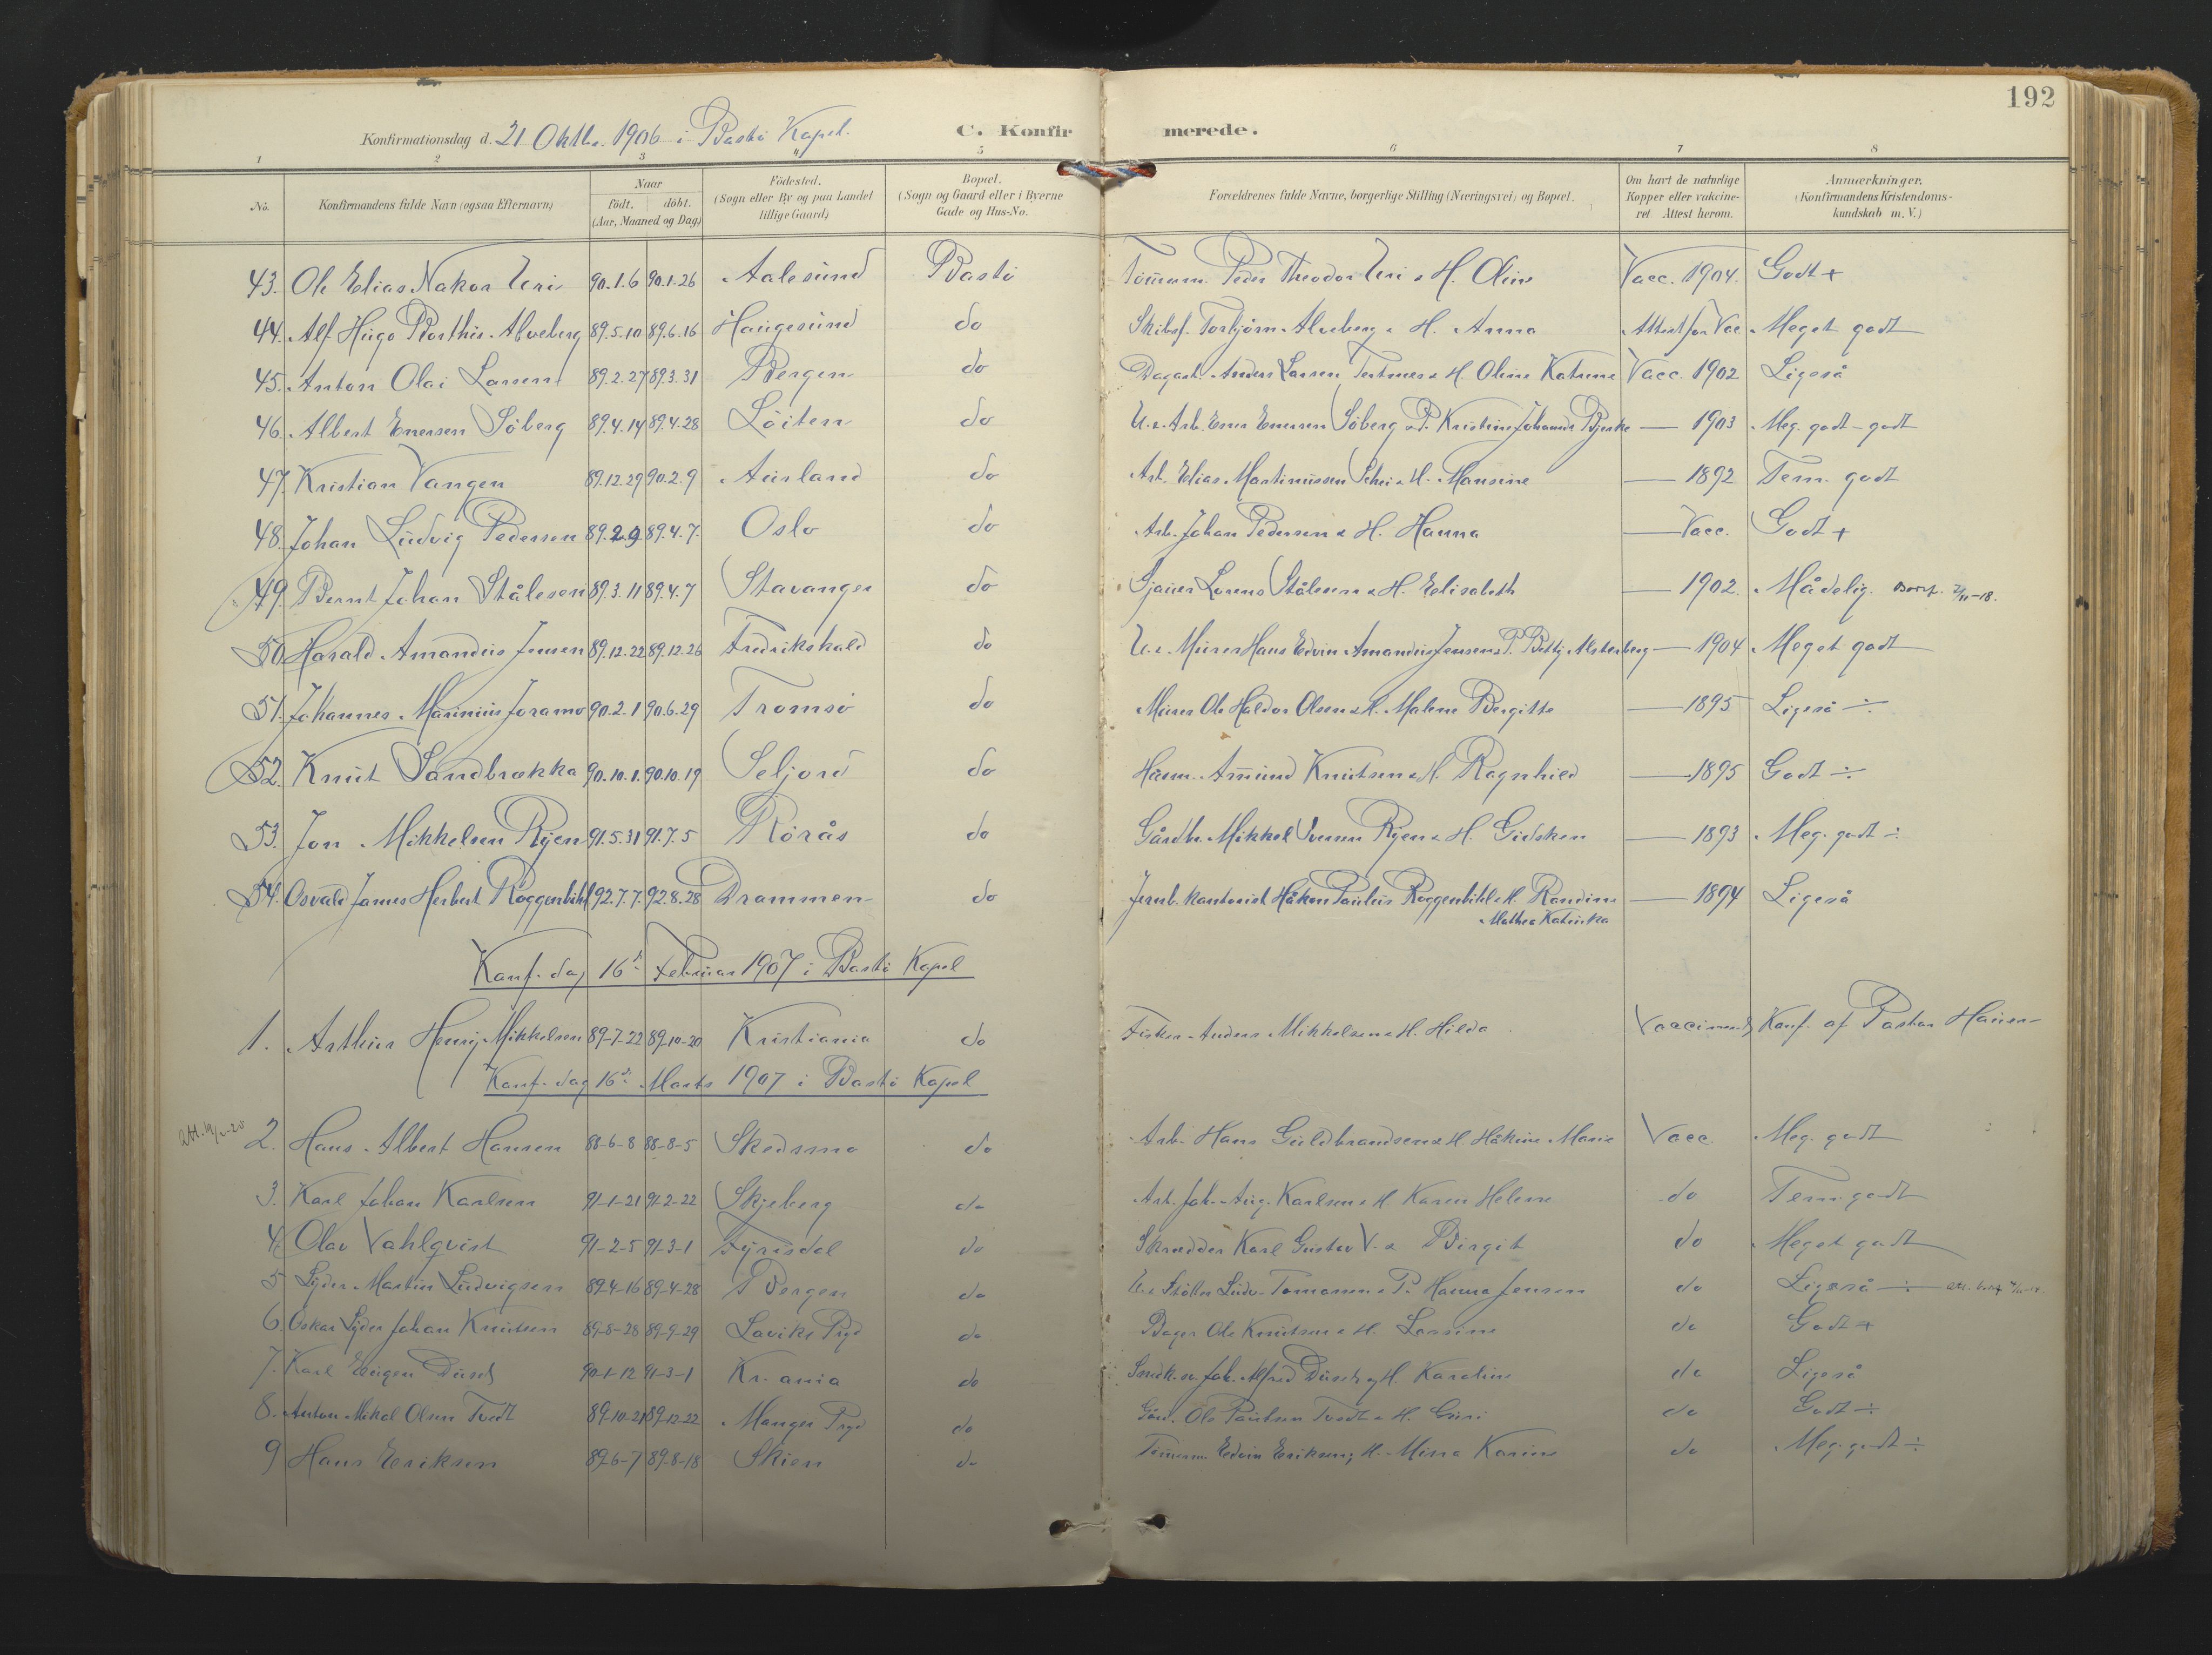 192
Konfirmationsdag d. 21 Oktbr. 1906 i Bastö Kapel.
C. Konfirmerede.
1 2 3 4 5 6 7 8
No. Konfirmandens fulde Navn (ogsaa Efternavn) Naar födt. döbt. (Aar, Maaned og Dag) Födested. (Sogn eller By og paa Landet tillige Gaard) Bopæl. (Sogn og Gaard eller i Byerne Gade og Hus-No. Forældrenes fulde Navne, borgerlige Stilling (Næringsvei) og Bopæl. Om havt de naturlige Kopper eller vakcineret. Attest herom. Anmærkninger. (Konfirmandens Kristendomskundskab m. V.)
43. Ole Elias Nakor Uri 90.1.6 90.1.26 Aalesund Bastö Tömmerm. Peder Theodor Uri & H. Oline Vacc. 1904. Godt +
44. Alf Hugo Alveberg 89.5.10 89.6.16 Haugesund do Skibsf. Torbjörn Alveberg & H. Anna Attest for Vac Meget godt
45. Anton Olai Larsen 89.2.27 89.3.31 Bergen do Dagarb. Anders Larsen Tertnes & H. Oline Katrine Vacc. 1902 Ligeså
46. Albert Enersen Söberg 89.4.14 89.4.28 Löiten do U. & Arb. Ener Enersen Söberg & P. Kristine Johannesd. Bjerke — 1903 Meg. godt - godt
47. Kristian Vangen 89.12.29 90.2.9 Aurland do Arb. Elias Martinussen Schei & H. Mansine — 1892 Tem. godt
48. Johan Ludvig Pedersen 89.2.9 89.4.7. Oslo do Arb. Johan Pedersen & H. Hanna — Vacc. Godt +
49. Bernt Johan Stålesen 89.3.11 89.4.7 Stavanger do Sjauer Lorens Stålesen & H. Elisabeth — 1902. Mådelig.
50 Harald Amandus Jensen 89.12.22 89.12.26 Fredrikshald do U. & Murer Hans Edvin Amandus Jensen & P. Betty Alsterberg — 1904 Meget godt
51. Johannes Marinius Joramo 90.2.1 90.6.29 Tromsö do Murer Ole Haldor Olsen & H. Malene Bergitte — 1895 Ligeså ÷
52. Knut Sandbrækka 90.10.1. 90.10.19 Seljord do Husm. Amund Knutsen & H. Ragnhild — 1895 Godt ÷
53. Jon Mikkelsen Ryen 91.5.31 91.7.5 Rörås do Gårdbr. Mikkel Iversen Ryen & H. Gidsken — 1893 Meg. godt ÷
54. Osvald James Herbert Roggenbihl 92.7.7. 92.8.28 Drammen do Jernb. kontorist Håkon Paulus Roggenbihl & H. Randine Mathea Katinka — 1894 Ligeså
Konf. dag 16de Februar 1907 i Bastö Kapel
1. Arthur Henry Mikkelsen 89-7-22 89-10-20 Kristiania do Fisker Anders Mikkelsen & H. Hilda Vaccinered Konf. af Pastor Hansen
Konf. dag 16de Marts 1907 i Bastö Kapel
2. Hans Albert Hansen 88-6-8 88-8-5 Skedsmo do Arb. Hans Guldbrandsen & H. Håkine Marie Vacc. Meg. godt
3. Karl Johan Karlsen 91-1-21 91-2-22 Skjeberg do Arb. Joh. Aug. Karlsen & H. Karen Helene do Tem. godt
4. Olav Vahlqvist 91-2-5 91-3-1 Fyrisdal do Skrædder Karl Gustav V. & Birgit do Meget godt
5 Lyder Martin Ludvigsen 89-4-16 89-4-28 Bergen do Ludv. Tomassen & P. Hanna Jensen do Ligeså ÷
6. Oskar Lyder Johan Knutsen 89-8-28 89-9-29 Laviks Prgd do Bager Ole Knutsen & H. Larsine do Godt +
7. Karl Eugen Dusch 90-1-12 91-3-1 Kr.ania do Snedk. sv. Joh. Alfred Dusch og H. Karoline do Ligeså
8. Anton Mikal Olsen Tvedt 89-10-21 89-12-22 Manger Prgd do Gårdb. Ole Paulsen Tvedt & H. Guri do Godt ÷
9 Hans Eriksen 89-6-7 89-8-18 Skien do Tömmerm. Edvin Eriksen & H. Mina Karine do Meg. godt ÷